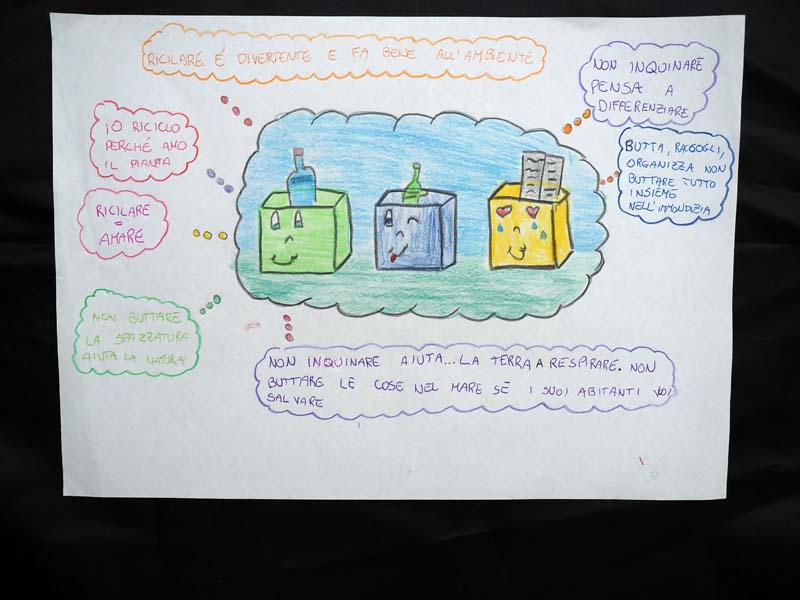 RICILARE É DIVERTENTE E FA BENE ALL'AMBIENTE
NON INQUINARE
PENSA A
DIFFERENZIARE
IO RICICLO
PERCHÉ AMO
IL PIANTA
BUTTA, RACGOGLI,
ORGANIZZA NON
BUTTARE TUTTO
INSIEME
NELL'IMMONDIZIA
RICILARE
=
AMARE
NON BUTTARE
LA SPAZZATURA
AIUTA LA NATURA
NON INQUINARE AIUTA...LA TERRA A RESPIRARE. NON
BUTTARE LE COSE NEL MARE SE I SUOI ABITANTI VUOI
SALVARE